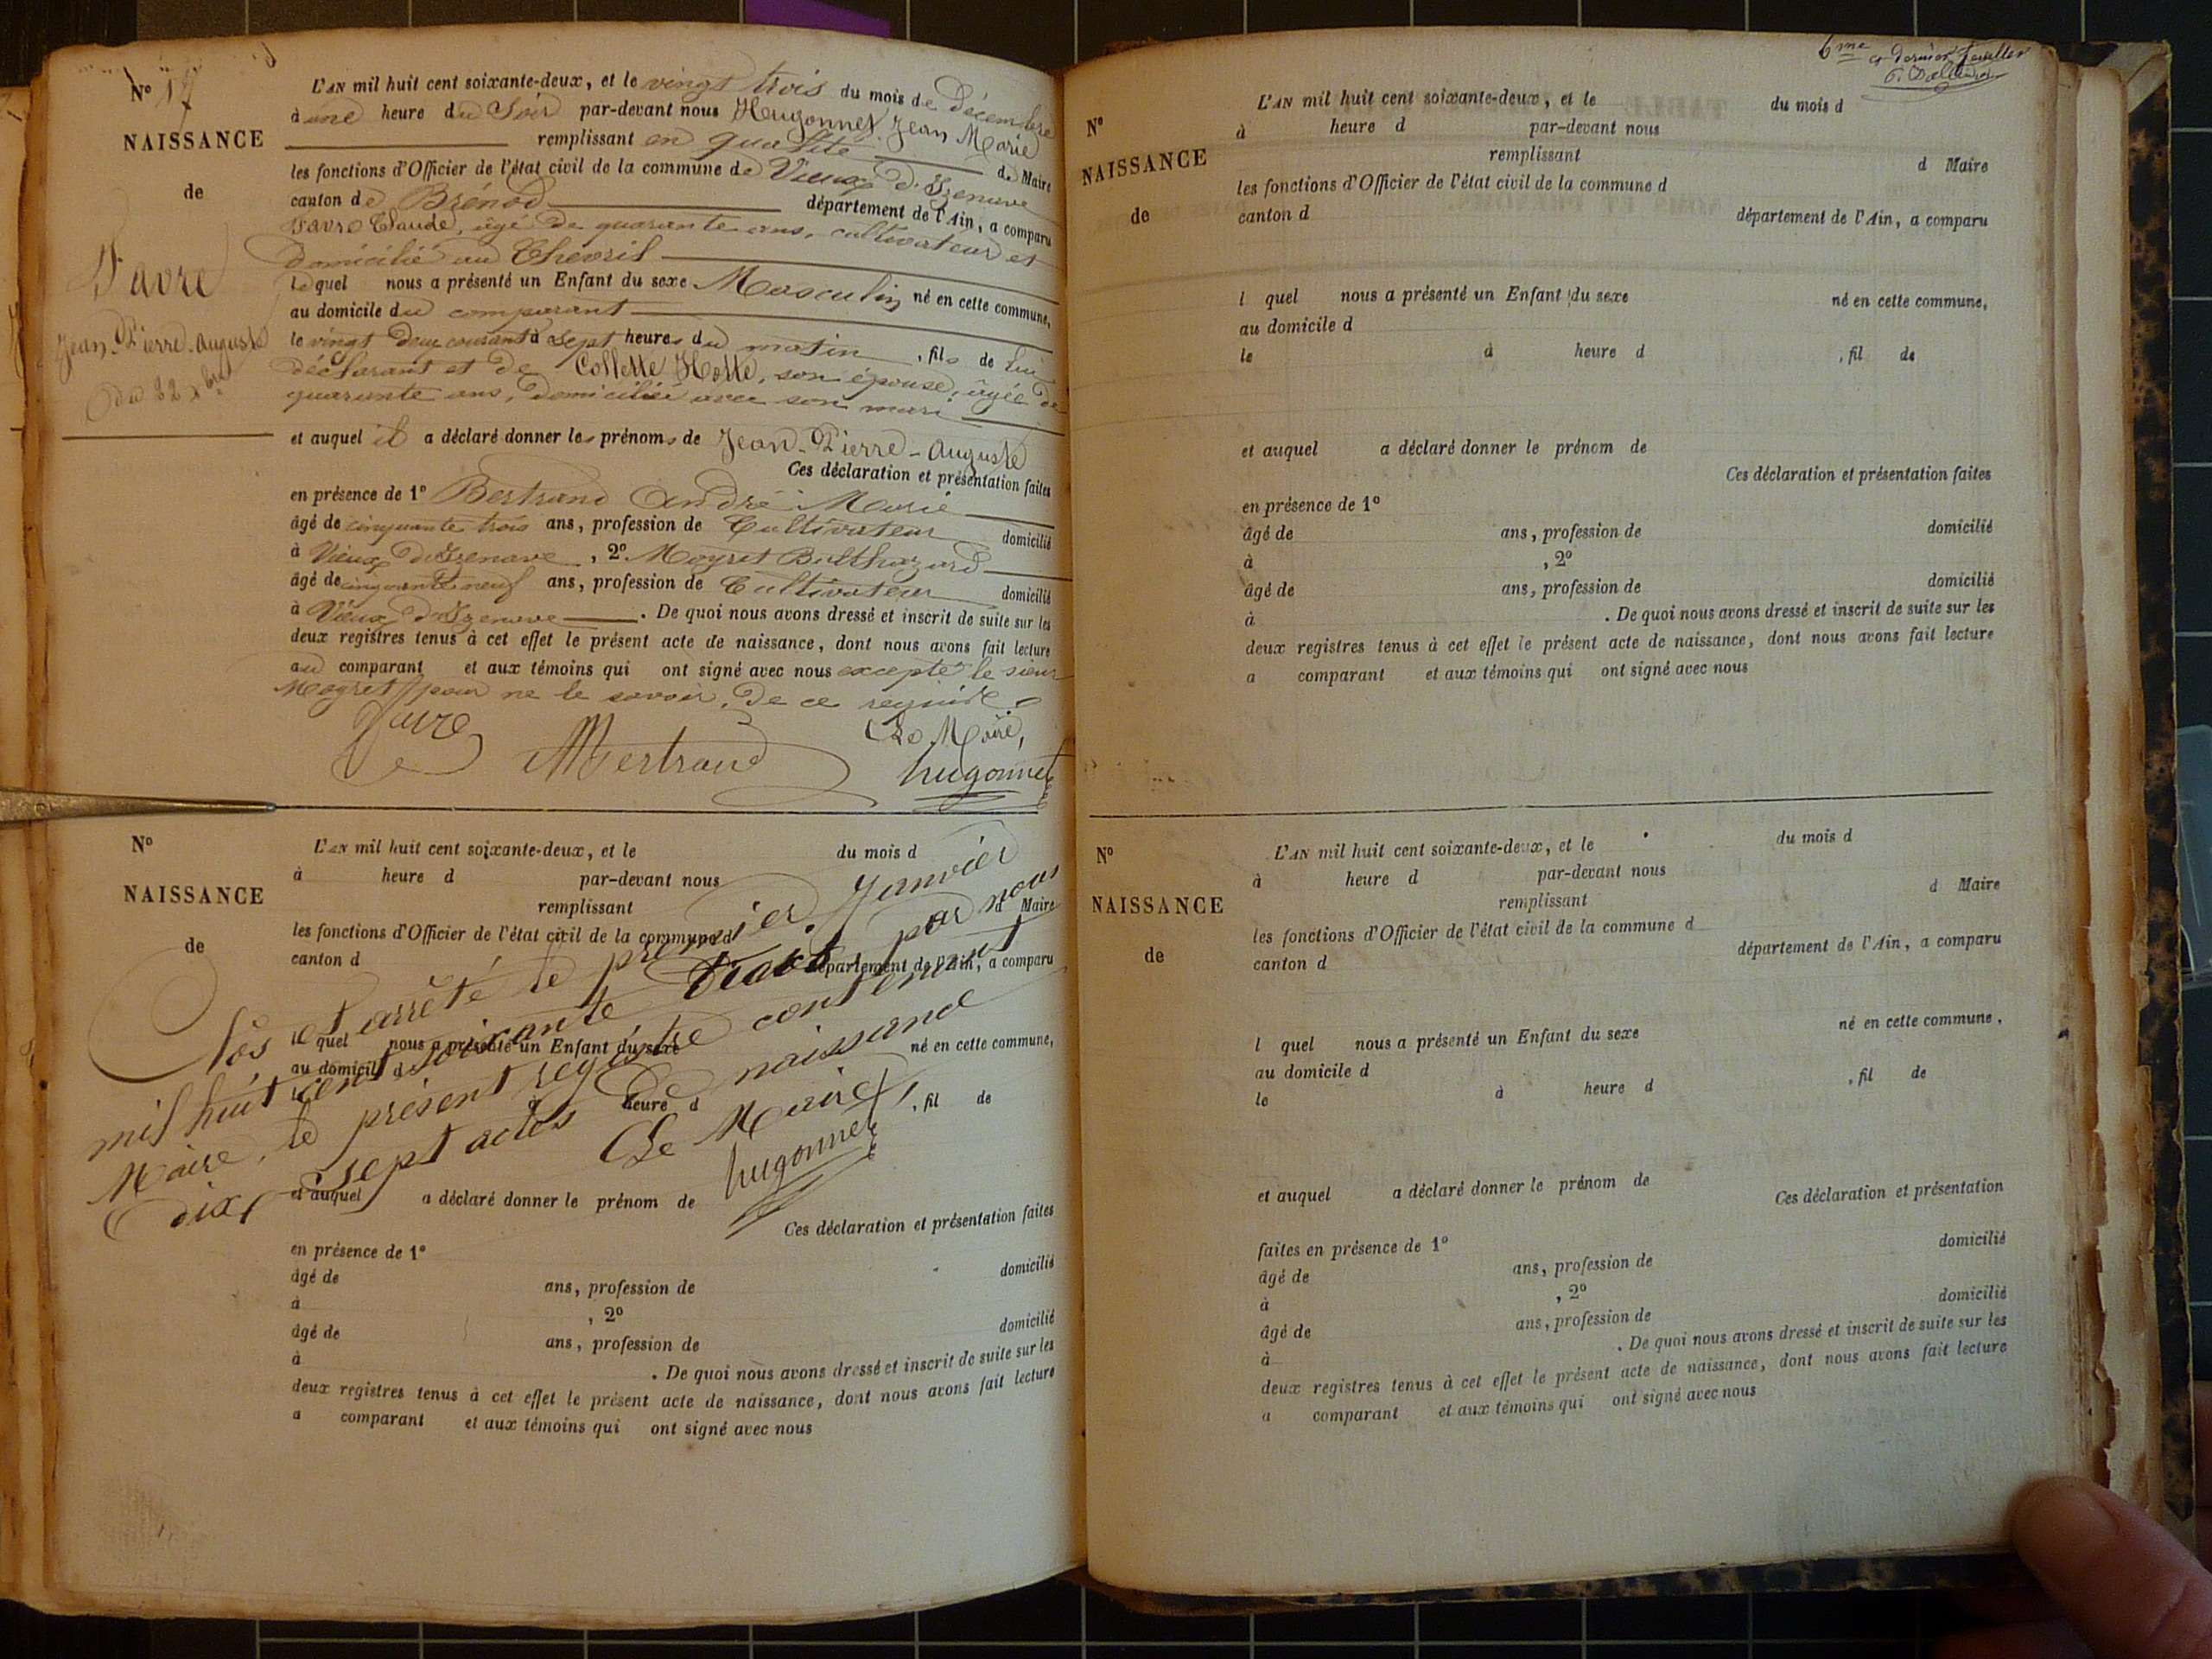 N° 17
NAISSANCE
de
Favre
Jean-Pierre-Auguste
du 22 Xbre
L'AN mil huit cent soixante-deux, et le vingt trois du mois de Décembre
à une heure du Soir par-devant nous Hugonnet Jean Marie
remplissant en qualité de Maire
les fonctions d'Officier de l'état civil de la commune de Vieux d'Izenave
canton de Brénod département de l'Ain, a comparu
Favre Claude, âgé de quarante ans, cultivateur et
domicilié au Chevril
lequel nous a présenté un Enfant du sexe Masculin né en cette commune,
au domicile du comparant
le vingt deux courant à sept heures du matin, fils de lui
déclarant et de Collette Hotte, son épouse, âgée de
quarante ans, domiciliée avec son mari
et auquel il a déclaré donner les prénoms de Jean-Pierre-Auguste
Ces déclaration et présentation faites
en présence de 1° Bertrand André Marie
âgé de cinquante trois ans, profession de Cultivateur domicilié
à Vieux D'Izenave, 2° Moyret Balthazard
âgé de cinquante neuf ans, profession de Cultivateur domicilié
à Vieux D'Izenave. De quoi nous avons dressé et inscrit de suite sur les
deux registres tenus à cet effet le présent acte de naissance, dont nous avons fait lecture
au comparant et aux témoins qui ont signé avec nous excepté le sieur
Moyret pour ne le savoir, de ce requis.
Favre Bertrand Le Maire,
hugonnet
N°
NAISSANCE
de
L'AN mil huit cent soixante-deux, et le du mois d
à heure d par-devant nous
remplissant d Maire
les fonctions d'Officier de l'état civil de la commune d
canton d département de l'Ain, a comparu
l quel nous a présenté un Enfant du sexe né en cette commune,
au domicile d
à heure d , fil de
Clos et arrêté le premier Janvier
mil huit cent soixante trois, par nous
Maire, le présent registre contenant
dix sept actes de naissance
Le Maire,
hugonnet
et auquel a déclaré donner le prénom de
Ces déclaration et présentation faites
en présence de 1°
âgé de ans, profession de domicilié
à , 2°
âgé de ans, profession de domicilié
à . De quoi nous avons dressé et inscrit de suite sur les
deux registres tenus à cet effet le présent acte de naissance, dont nous avons fait lecture
a comparant et aux témoins qui ont signé avec nous
6me et dernier feuillet
N°
NAISSANCE
de
L'AN mil huit cent soixante-deux, et le du mois d
à heure d par-devant nous
remplissant d Maire
les fonctions d'Officier de l'état civil de la commune d
canton d département de l'Ain, a comparu
l quel nous a présenté un Enfant du sexe né en cette commune,
au domicile d
le à heure d , fil de
et auquel a déclaré donner le prénom de
Ces déclaration et présentation faites
en présence de 1°
âgé de ans, profession de domicilié
à , 2°
âgé de ans, profession de domicilié
à . De quoi nous avons dressé et inscrit de suite sur les
deux registres tenus à cet effet le présent acte de naissance, dont nous avons fait lecture
a comparant et aux témoins qui ont signé avec nous
N°
NAISSANCE
de
L'AN mil huit cent soixante-deux, et le du mois d
à heure d par-devant nous
remplissant d Maire
les fonctions d'Officier de l'état civil de la commune d
canton d département de l'Ain, a comparu
l quel nous a présenté un Enfant du sexe né en cette commune,
au domicile d
le à heure d , fil de
et auquel a déclaré donner le prénom de
Ces déclaration et présentation
faites en présence de 1° domicilié
âgé de ans, profession de
à , 2° domicilié
âgé de ans, profession de
à . De quoi nous avons dressé et inscrit de suite sur les
deux registres tenus à cet effet le présent acte de naissance, dont nous avons fait lecture
a comparant et aux témoins qui ont signé avec nous